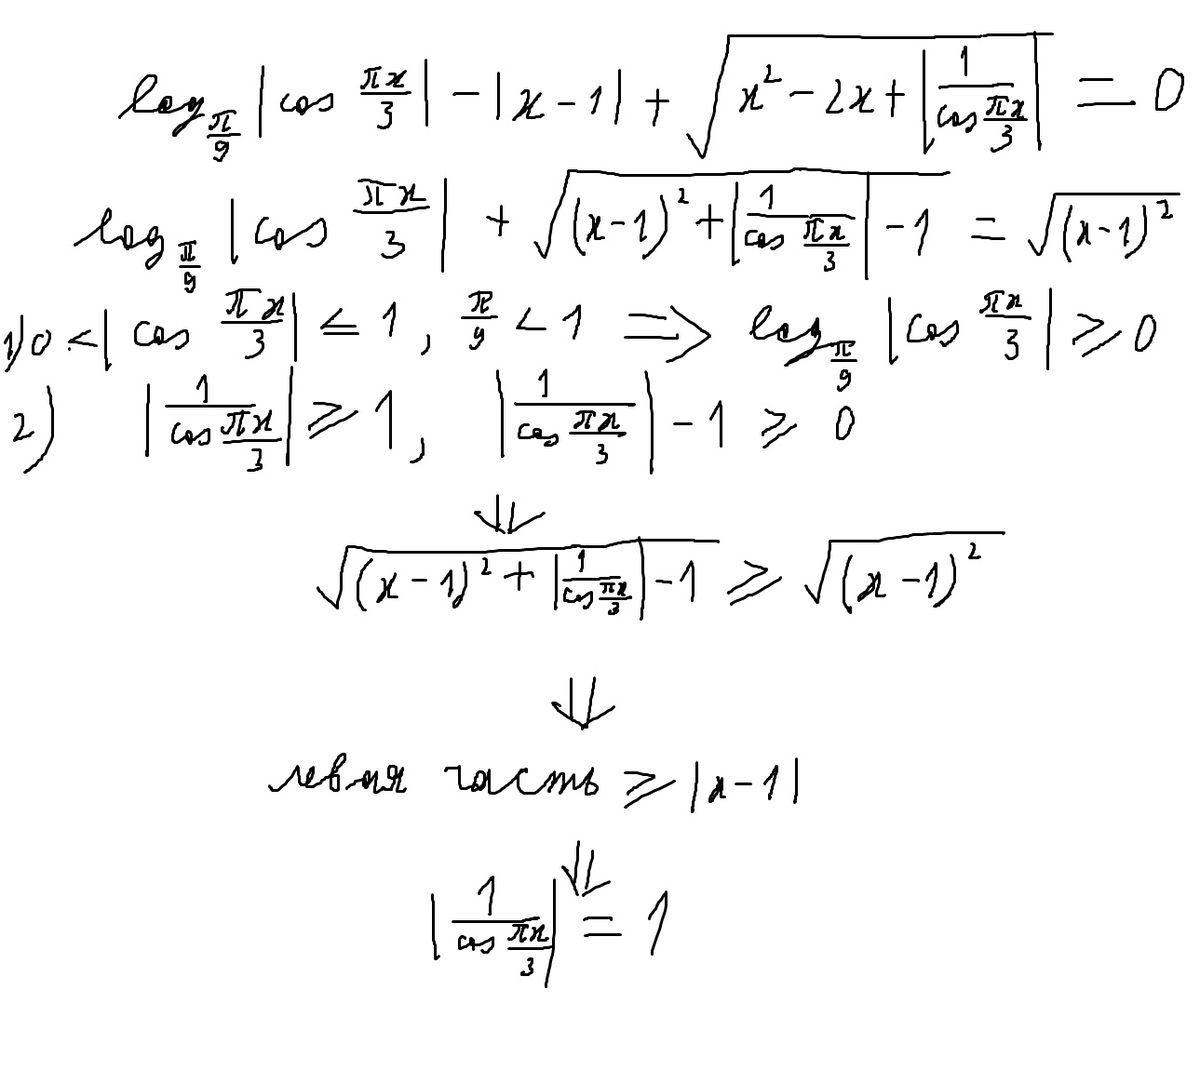 log_{π/9} |cos πx/3| - |x - 1| + √(x² - 2x + |1/(cos πx/3)|) = 0
log_{π/9} |cos πx/3| + √((x-1)² + |1/(cos πx/3)| - 1) = √((x-1)²)
1) 0 < |cos πx/3| ≤ 1, π/9 < 1 ⟹ log_{π/9} |cos πx/3| ⩾ 0
2) |1/(cos πx/3)| ⩾ 1, |1/(cos πx/3)| - 1 ⩾ 0
⇓
√((x-1)² + |1/(cos πx/3)| - 1) ⩾ √((x-1)²)
⇓
левая часть ⩾ |x-1|
⇓
|1/(cos πx/3)| = 1